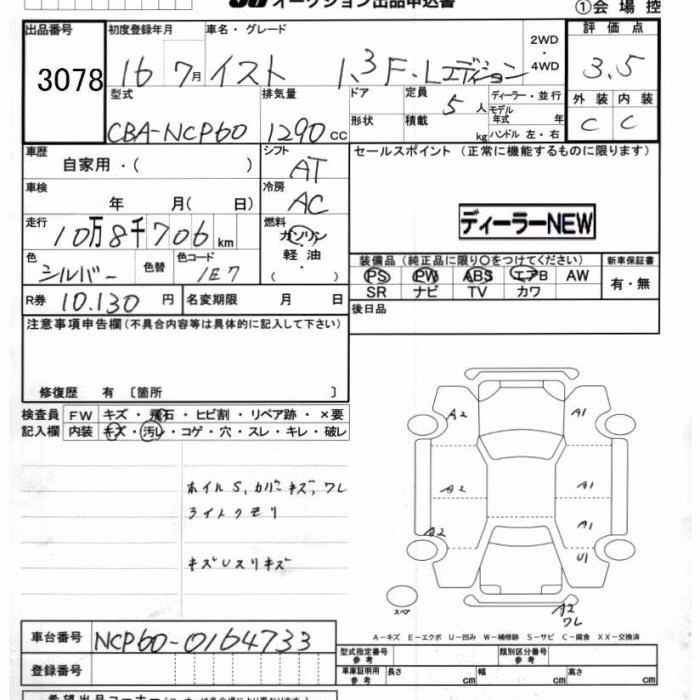 オークション出品申込書
①会場控
出品番号 初度登録年月 車名・グレード 2WD・4WD 評価点
3078 16 7月 イスト 1.3 F・Lエディション 3.5
型式 排気量 ドア 定員 5人 ディーラー・並行 外装 内装
CBA-NCP60 1290cc 形状 積載 kg モデル年式 年 ハンドル 左・右 C C
車歴 シフト セールスポイント (正常に機能するものに限ります)
自家用・( ) AT
車検 冷房
年 月( 日) AC
ディーラーNEW
走行 燃料
10万8千706km ガソリン
軽油
・( )
色 シルバー 色替 色コード 1E7
装備品 (純正品に限り○をつけてください) 新車保証書
PS PW ABS エアB AW 有・無
SR ナビ TV カワ
R券 10.130円 名変期限 月 日
後日品
注意事項申告欄(不具合内容等は具体的に記入して下さい)
修復歴 有 〔箇所 〕
検査員 FW キズ・飛石・ヒビ割・リペア跡・×要
記入欄 内装 キズ・汚レ・コゲ・穴・スレ・キレ・破レ
ホイルS,カバーキズ,ワレ
ライトクモリ
キズUスリキズ
A2 A1
A2 A1
A2 A1
U1
スペア
A2
ワレ
A-キズ E-エクボ U-凹み W-補修跡 S-サビ C-腐食 XX-交換済
車台番号 NCP60-0164733
型式指定番号 参考 類別区分番号 参考
登録番号
車庫証明用 参考 長さ cm 幅 cm 高さ cm
希望出品コーナー